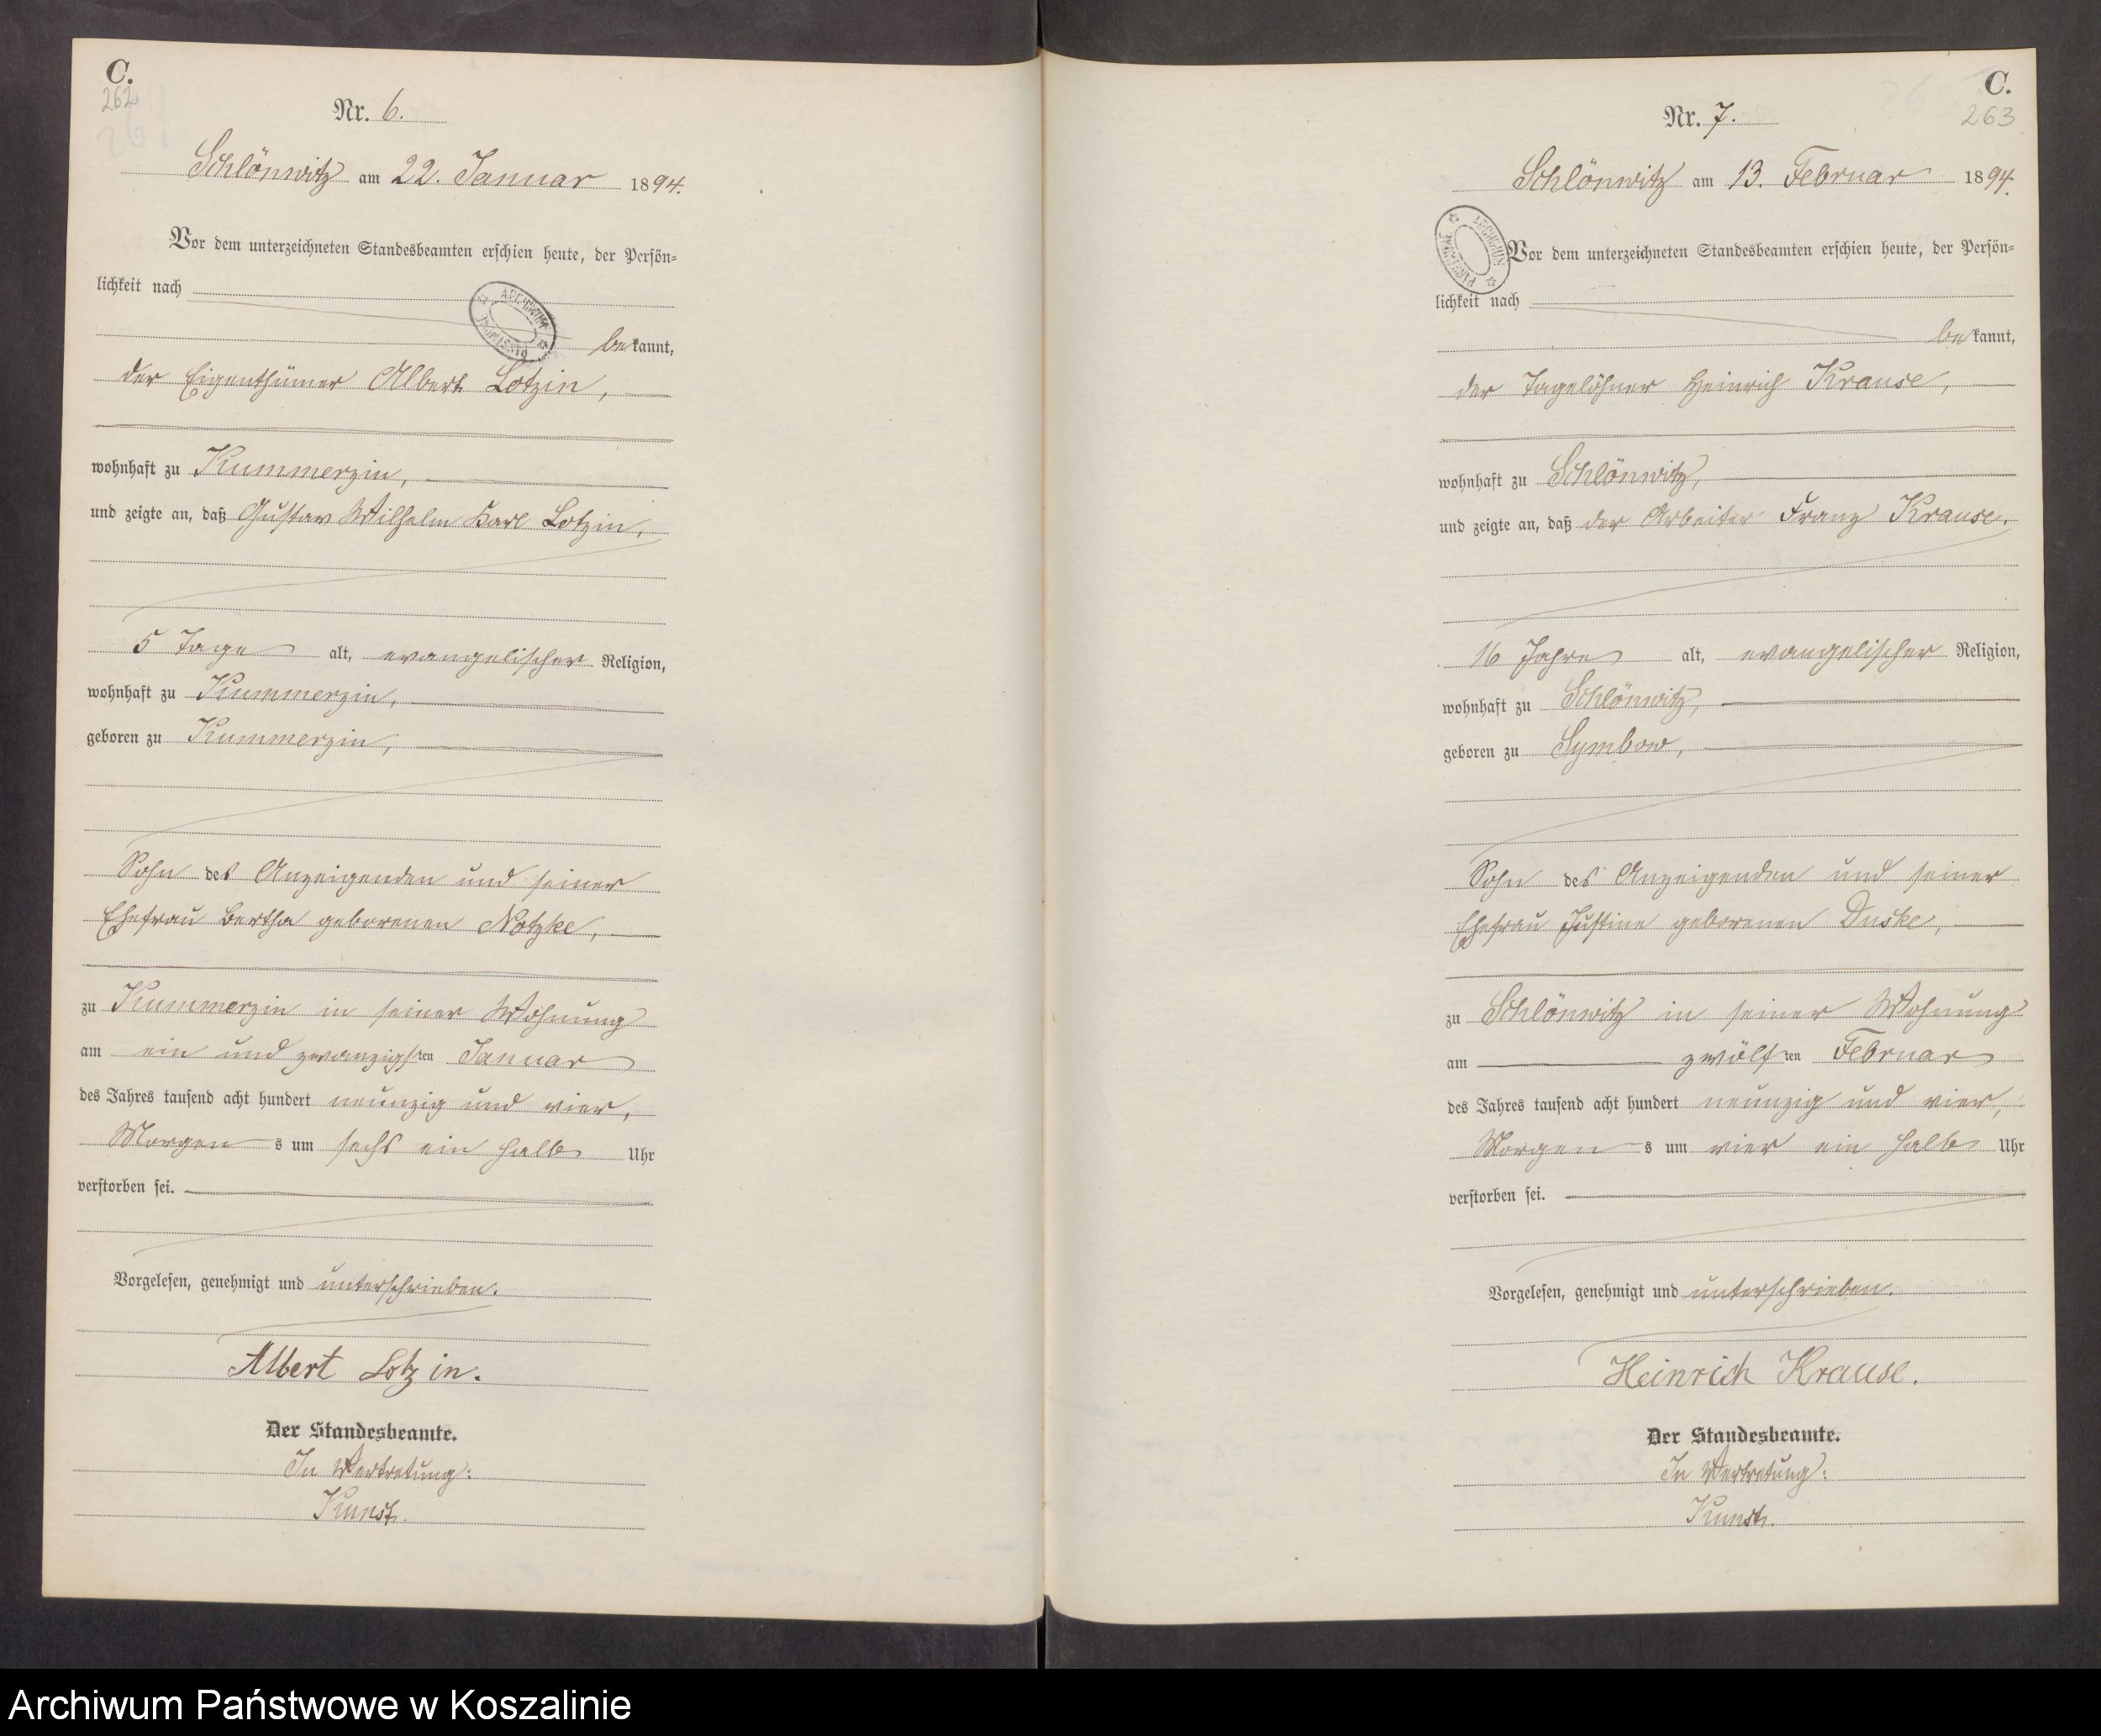 C.
262
Nr. 6.
Schlönwitz am 22. Januar 1894.
Vor dem unterzeichneten Standesbeamten erschien heute, der Persön-
lichkeit nach
bekannt,
der Eigenthümer Albert Lotzin,
wohnhaft zu Kummerzin,
und zeigte an, daß Gustav Wilhelm Karl Lotzin,
5 Tage alt, evangelischer Religion,
wohnhaft zu Kummerzin,
geboren zu Kummerzin,
Sohn des Anzeigenden und seiner
Ehefrau Bertha geborenen Notzke,
zu Kummerzin in seiner Wohnung
am ein und zwanzigsten Januar
des Jahres tausend acht hundert neunzig und vier,
Morgens um sechs ein halb Uhr
verstorben sei.
Vorgelesen, genehmigt und unterschrieben.
Albert Lotzin.
Der Standesbeamte.
In Vertretung:
Kunst.
C.
263
Nr. 7.
Schlönwitz am 13. Februar 1894.
ARCHIWUM PAŃSTWOWE
Vor dem unterzeichneten Standesbeamten erschien heute, der Persön-
lichkeit nach
bekannt,
der Tagelöhner Heinrich Krause,
wohnhaft zu Schlönwitz,
und zeigte an, daß der Arbeiter Franz Krause,
16 Jahre alt, evangelischer Religion,
wohnhaft zu Schlönwitz,
geboren zu Symbow,
Sohn des Anzeigenden und seiner
Ehefrau Justine geborenen Duske,
zu Schlönwitz in seiner Wohnung
am zwölften Februar
des Jahres tausend acht hundert neunzig und vier,
Morgens um vier ein halb Uhr
verstorben sei.
Vorgelesen, genehmigt und unterschrieben.
Heinrich Krause.
Der Standesbeamte.
In Vertretung:
Kunst.
Archiwum Państwowe w Koszalinie